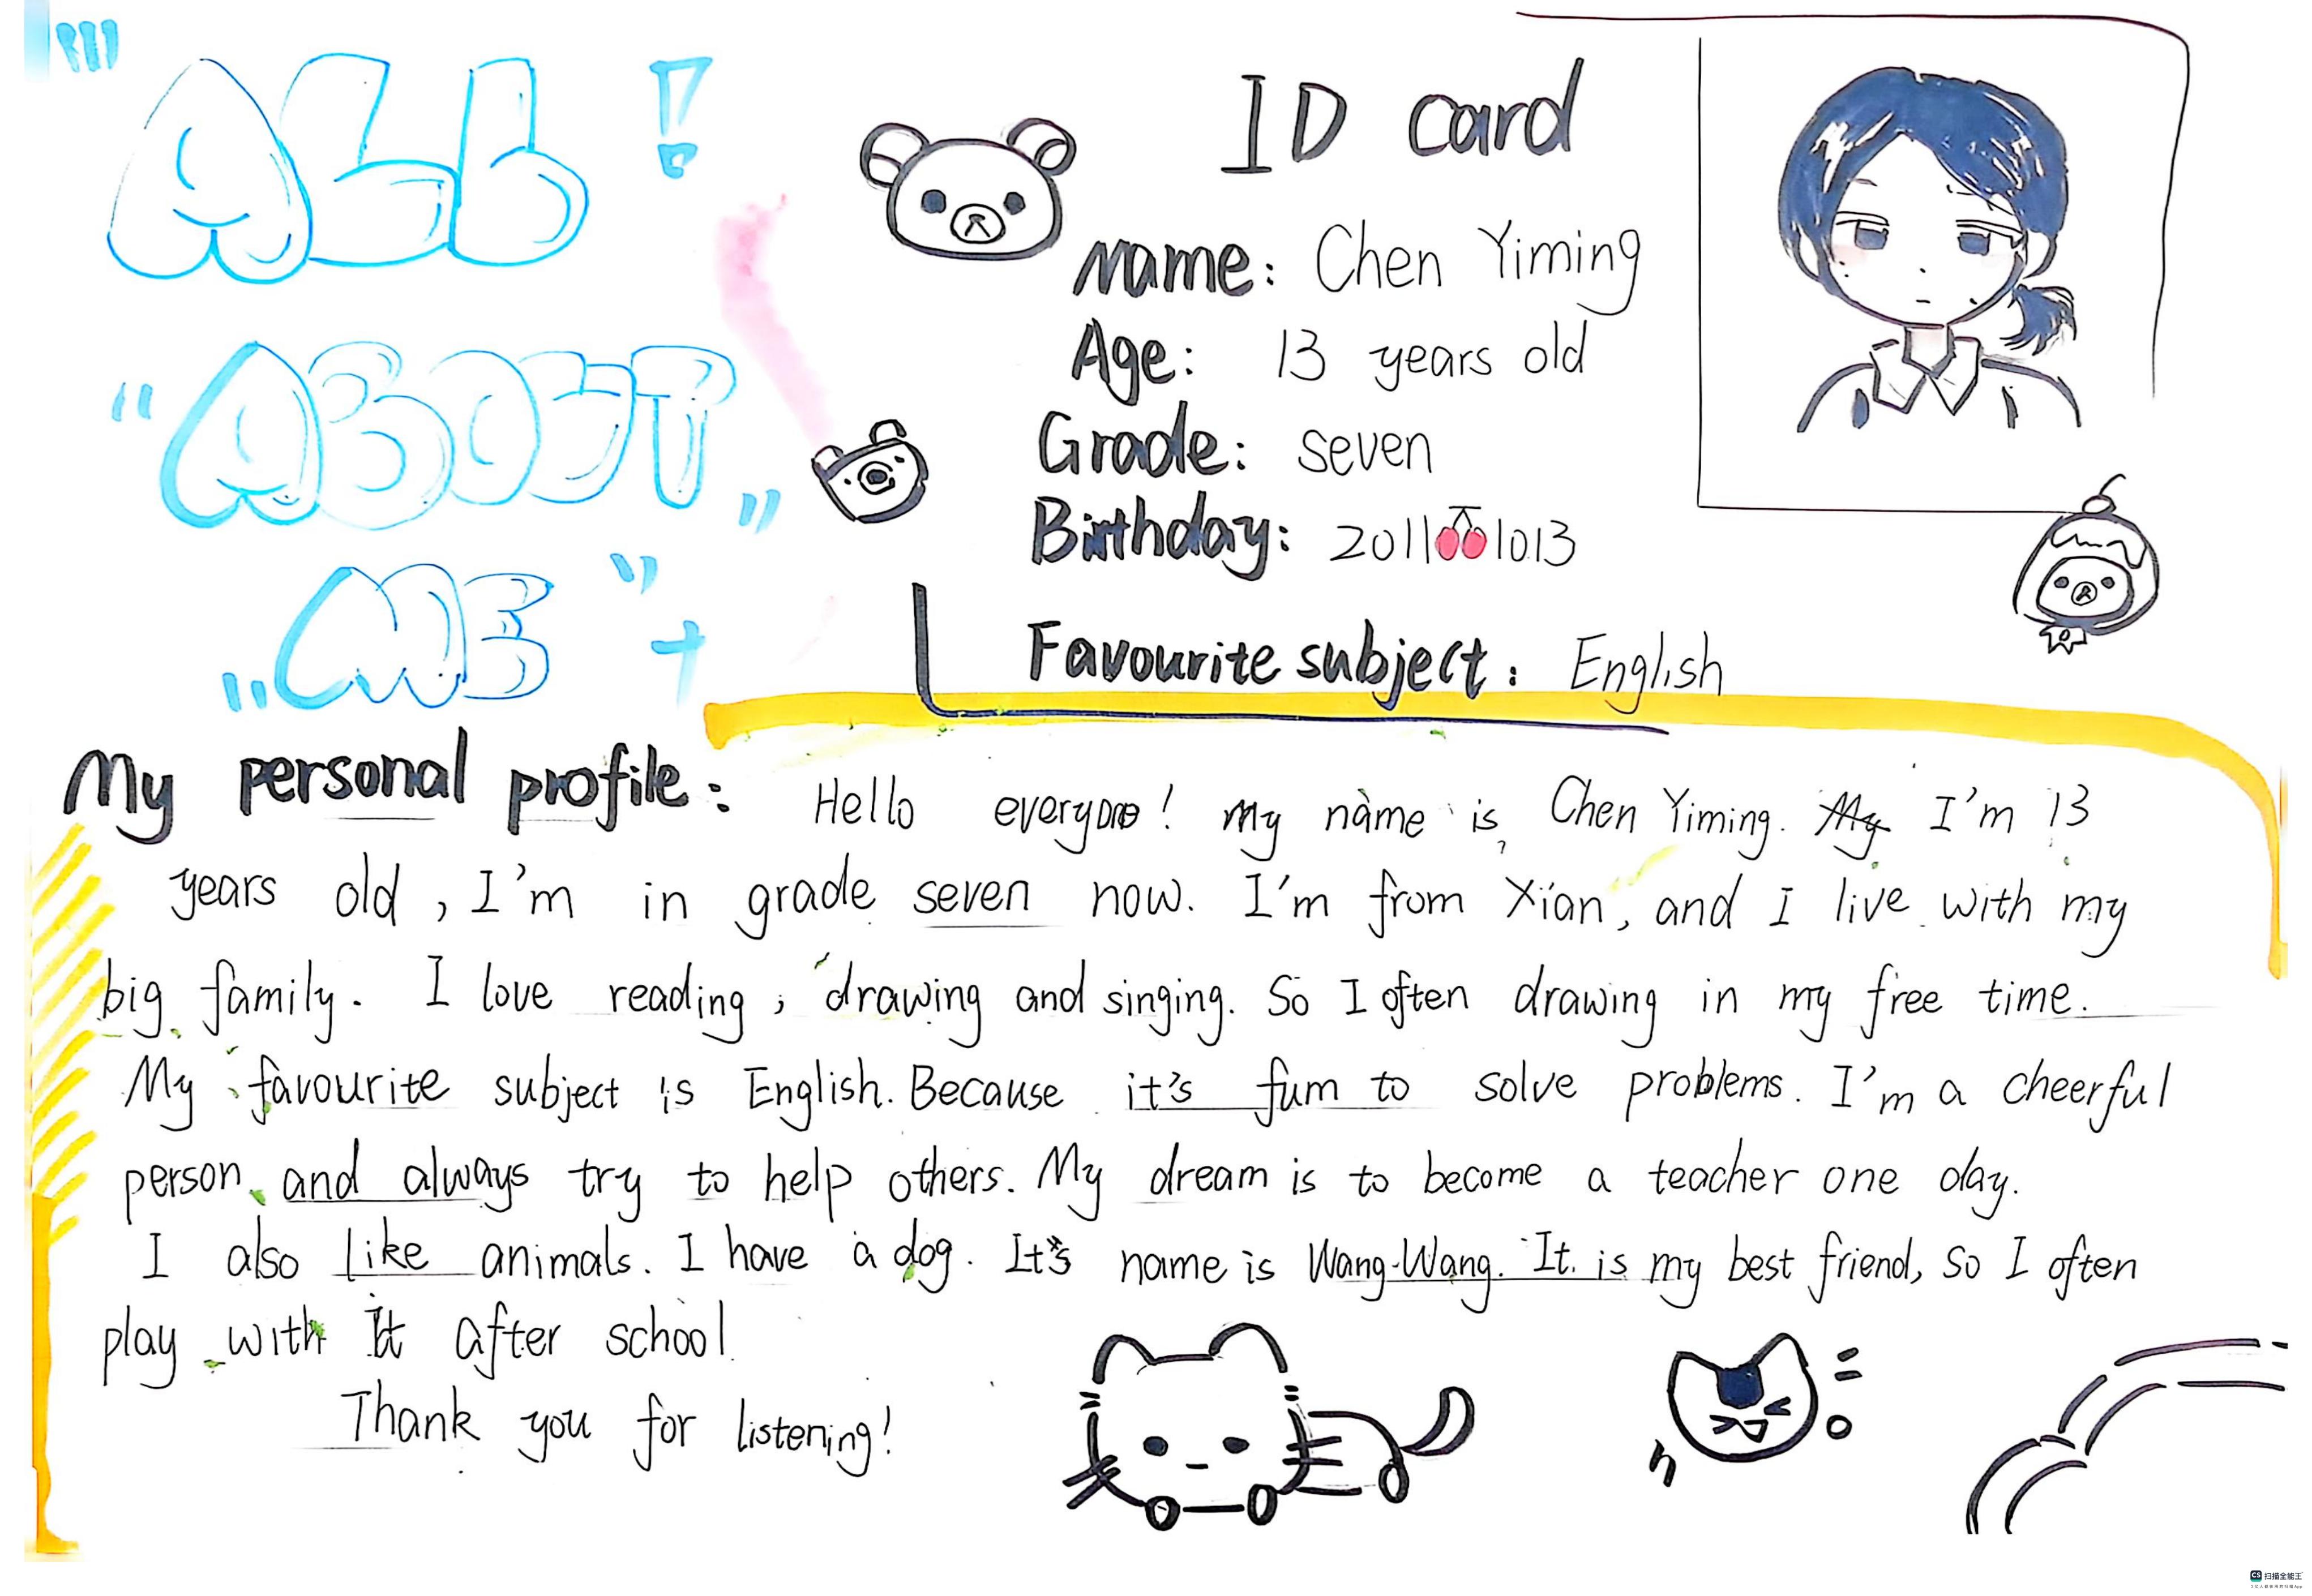 ALL !
ABOUT
ME
ID card
Name: Chen Yiming
Age: 13 years old
Grade: seven
Birthday: 2011 1013
Favourite subject: English
My personal profile: Hello everyone! My name is Chen Yiming. My I'm 13
years old, I'm in grade seven now. I'm from Xian, and I live with my
big family. I love reading, drawing and singing. So I often drawing in my free time.
My favourite subject is English. Because it's fum to solve problems. I'm a cheerful
person and always try to help others. My dream is to become a teacher one day.
I also like animals. I have a dog. It's name is Wang-Wang. It is my best friend, so I often
play with it after school.
Thank you for listening!
CS 扫描全能王